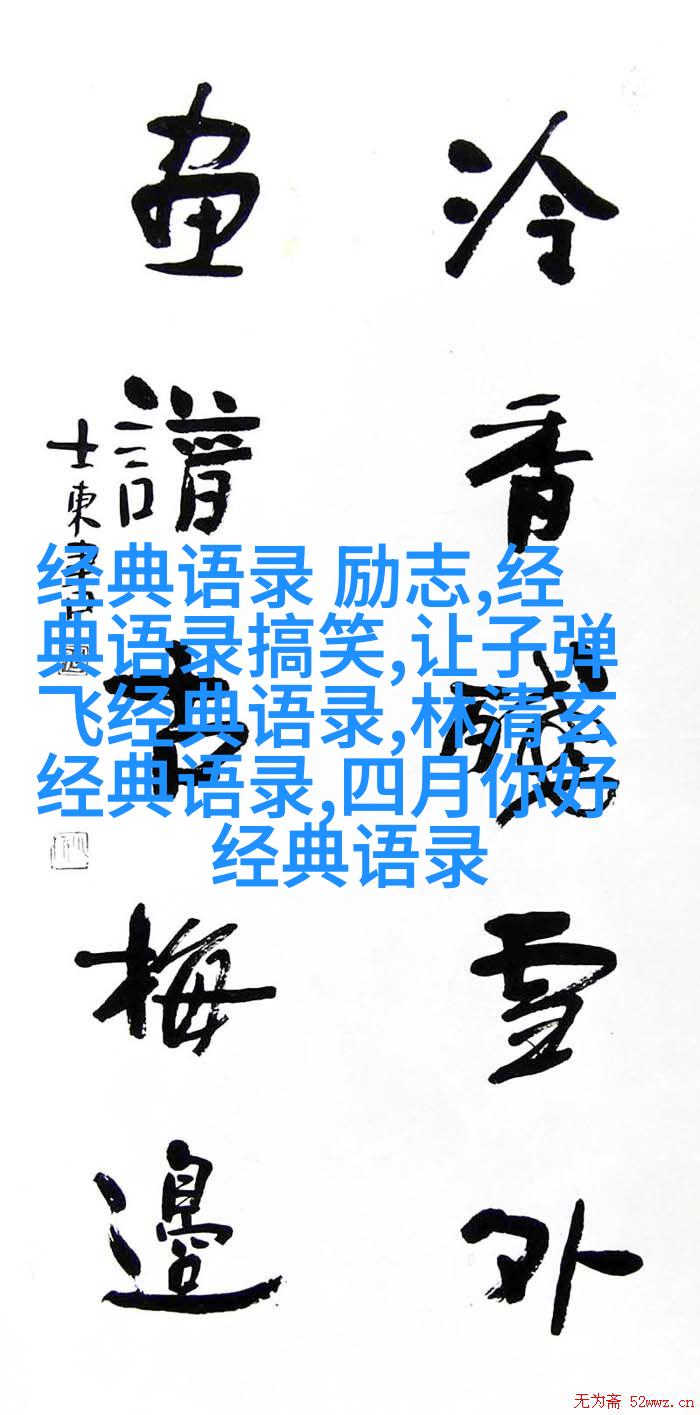 泠香殘雪外
畫譜古梅邊
士東
经典语录 励志,经
典语录搞笑,让子弹
飞经典语录,林清玄
经典语录,四月你好
经典语录
无为斋 52wwz.cn